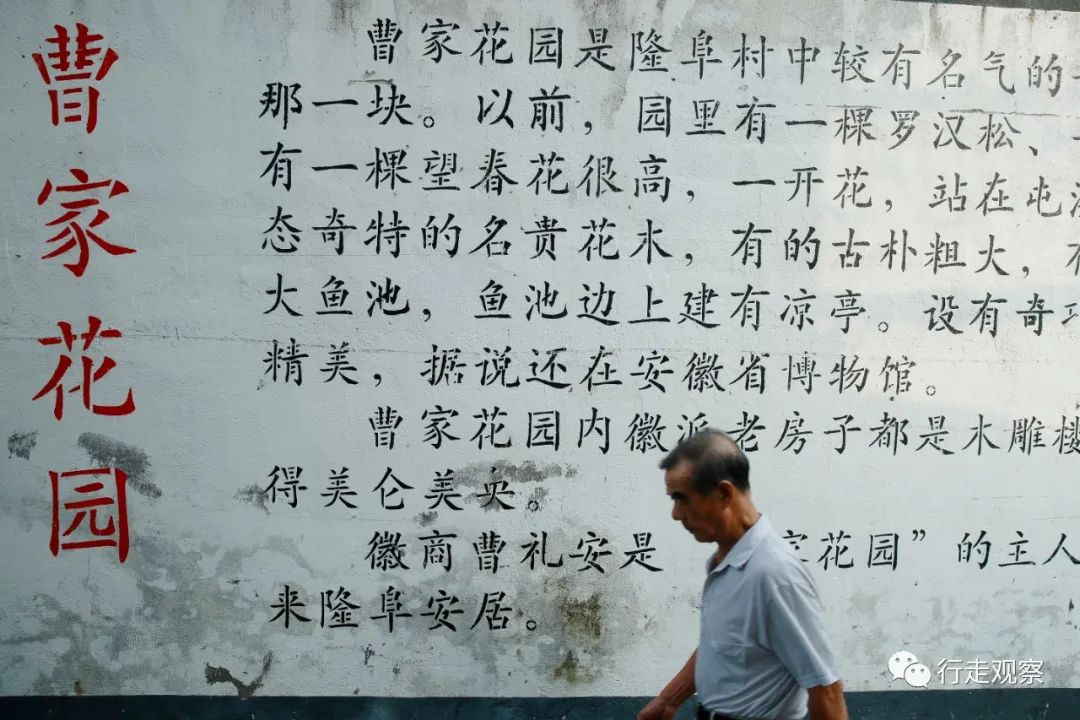 曹家花园
曹家花园是隆阜村中较有名气的
那一块。以前，园里有一棵罗汉松、
有一棵望春花很高，一开花，站在屯
态奇特的名贵花木，有的古朴粗火，
大鱼池，鱼池边上建有凉亭。设有奇
精美，据说还在安徽省博物馆。
曹家花园内徽派老房子都是木雕楼
得美仑美央。
徽商曹礼安是 花园”的主人
来隆阜安居。
行走观察